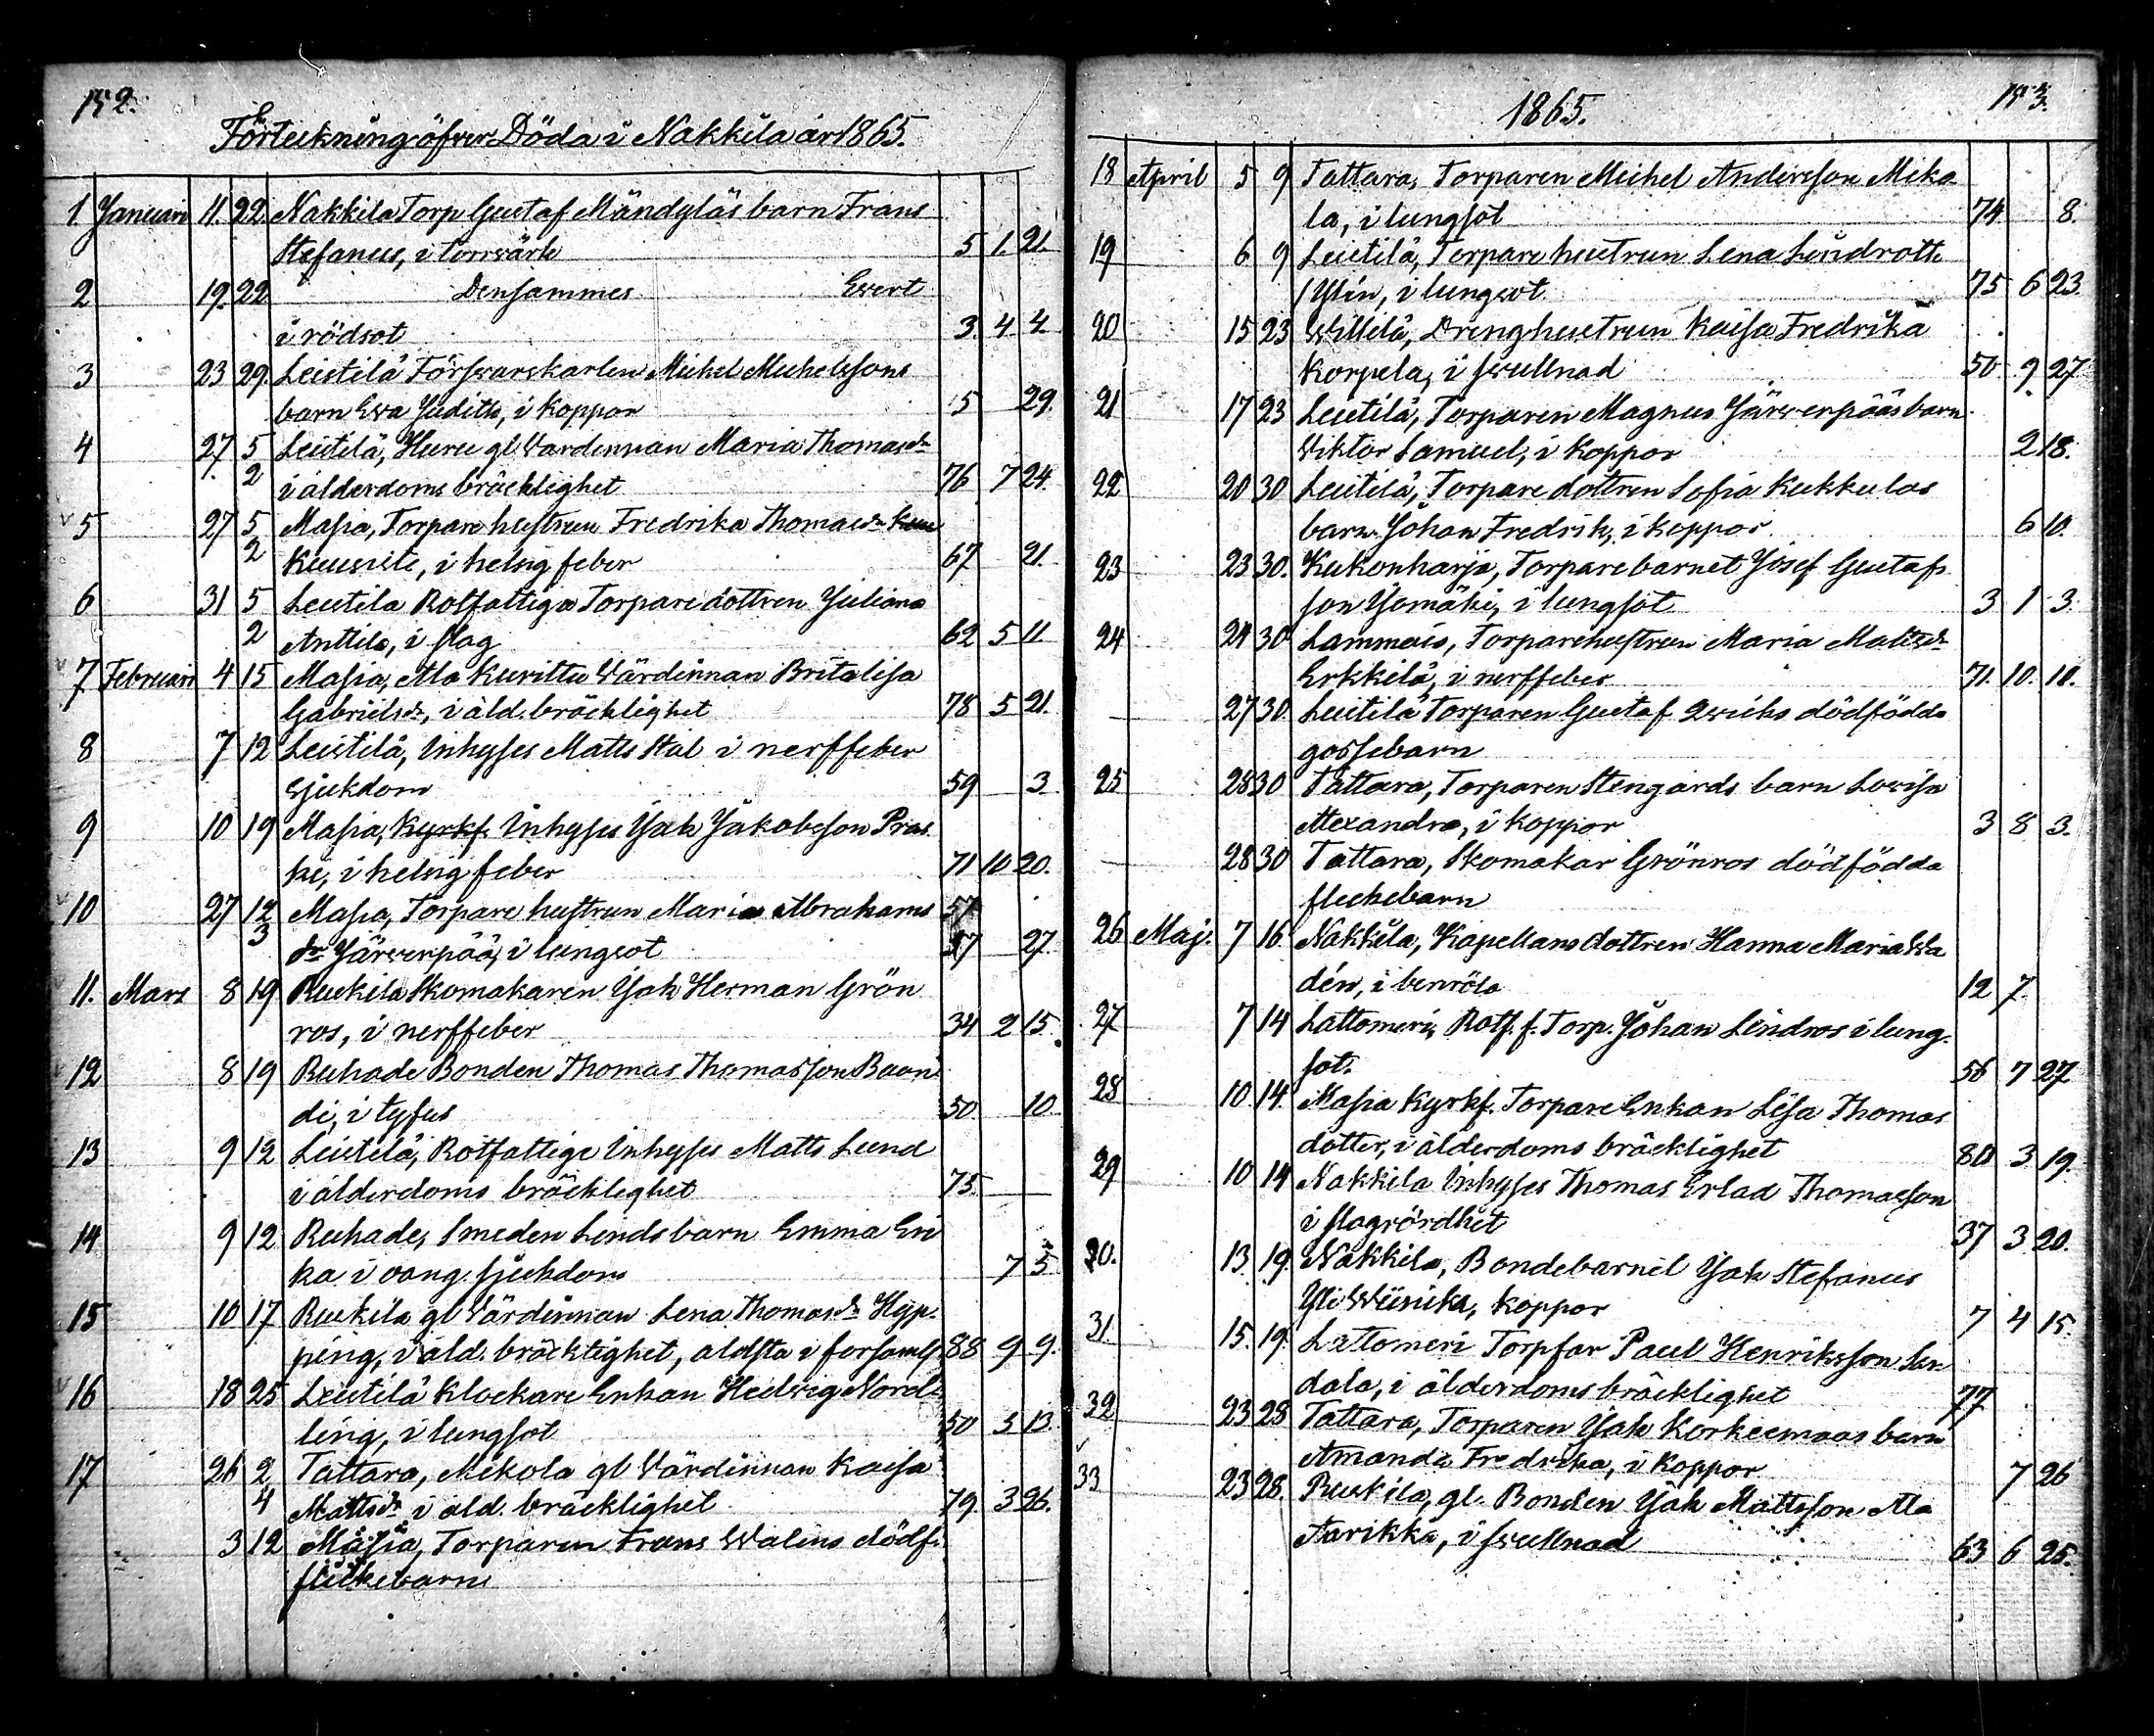 152.
Förteckning öfver Döda i Nakkila år 1865.
1. Januari 11. 22. Nakkila Torp Gustaf Mändyläs barn Frans
Stefanus, i torrvärk 5 1. 21.
2 19. 22 Densammes Evert
i rödsot 3. 4 4
3 23 29. Leistilä Försvarskarlen Michel Michelssons
barn Eva Judith, i koppor 5 29.
4 27. 5 Leistilä, Huru gl. Vardinnan Maria Thomasdr
2 i ålderdoms bräcklighet 76 7 24.
5 27 5 Masia, Torpare hustrun Fredrika Thomasdr
2 i helsig feber 67 21.
6 31 5 Leistila Rotfattiga Torparedottren Juliana
2 Anttila, i slag 62 5 11
7 Februari 4 15 Masia, Ala Kurittu Värdinnan Britalisa
Gabrielsdr, i åld. bräcklighet 78 5 21.
8 7 12 Leistilä, Inhyses Matts Stål i nerffeber
sjukdom 59 3.
9 10 19 Masia, Kyrkf. Inhyses Jak Jakobsson Pras
ki, i helsig feber 71 10 20.
10 27 12 Masia, Torpare hustrun Maria Abrahams 57
3 dr Järvenpää, i lungsot 57 27.
11. Mars 8 19 Ruskila Skomakaren Jak Herman Grön
ros, i nerffeber 34 2 15.
12 8 19 Ruhade Bonden Thomas Thomasson Buon
di, i tyfus 50. 10
13 9 12 Leistilä, Rotfattige Inhyses Matts Lund
i ålderdoms bräcklighet 75.
14 9 12 Ruhade, Smeden Lends barn Emma Eri
ka i oang. sjukdom 7 5
15 10 17 Ruskila gl Värdinnan Lena Thomasdr Hyp-
ping, i åld. bräcklighet, äldsta i församl. 88 9 9.
16 18 25 Leistilä Klockare Enkan Hedvig Nord-
ling, i lungsot 50 5 13.
17 26 2 Tattara, Mikola gl Värdinnan Kaisa
4 Mattsdr i åld. bräcklighet 79. 3 26.
3 12 Masia, Torparen Frans Walins dödf.
flickebarn
1865. 153.
18 April 5 9 Tattara, Torparen Michel Andersson Miko
la, i lungsot 74 8.
19 6 9 Leistilä, Torpare hustrun Lena Lindroth
/Ylin, i lungsot 75 6 23.
20 15 23 Willilä, Dränghustrun Kaisa Fredrika
Korpela, i svullnad 50 9 27
21 17 23 Leistilä, Torparen Magnus Järvenpääs barn
Viktor Samuel, i koppor 2 18.
22 20 30 Leistilä, Torpare dottren Sofia Kukkulas
barn Johan Fredrik, i koppor 6 10.
23 23 30. Kukonharja, Torparebarnet Josef Gustafs
son Yomäki, i lungsot 3 1 3.
24 24 30 Lammais, Torparehustrun Maria Mattsdr
Erkkilä, i nerffeber 71. 10. 10.
— 27 30. Leistilä Torparen Gustaf Qwicks dödfödda
gossebarn
25 28 30 Tattara, Torparen Stengårds barn Lovisa
Alexandra, i koppor 3 8 3.
— 28 30 Tattara, Skomakar Grönros dödfödda
flickebarn
26 Maj. 7 16. Nakkila, Kapellans dottren Hanna Maria Wa
dén, i benröta 12 7.
27 7 14 Lattomeri, Rotf. f. Torp. Johan Lindros i lung-
sot. 56 7 27
28 10. 14. Masia Kyrkf. Torpare Enkan Lisa Thomas
dotter, i ålderdoms bräcklighet 80 3 19.
29 10 14 Nakkila Inhyses Thomas Erlad Thomasson
i slagrördhet 37 3 20.
30. 13. 19. Nakkila, Bondebarnet Jak Stefanus
Yli Wiinika, koppor 7 4 15.
31. 15. 19. Lattomeri Torpfar Paul Henriksson Lin
dala, i ålderdoms bräcklighet 77
32 23 28 Tattara, Torparen Jak Korkeemaas barn
Amanda Fredrika, i koppor 7 26
33 23 28. Ruskila, gl. Bonden Jak Mattsson Ala
Aarikka, i svullnad 63 6 25.